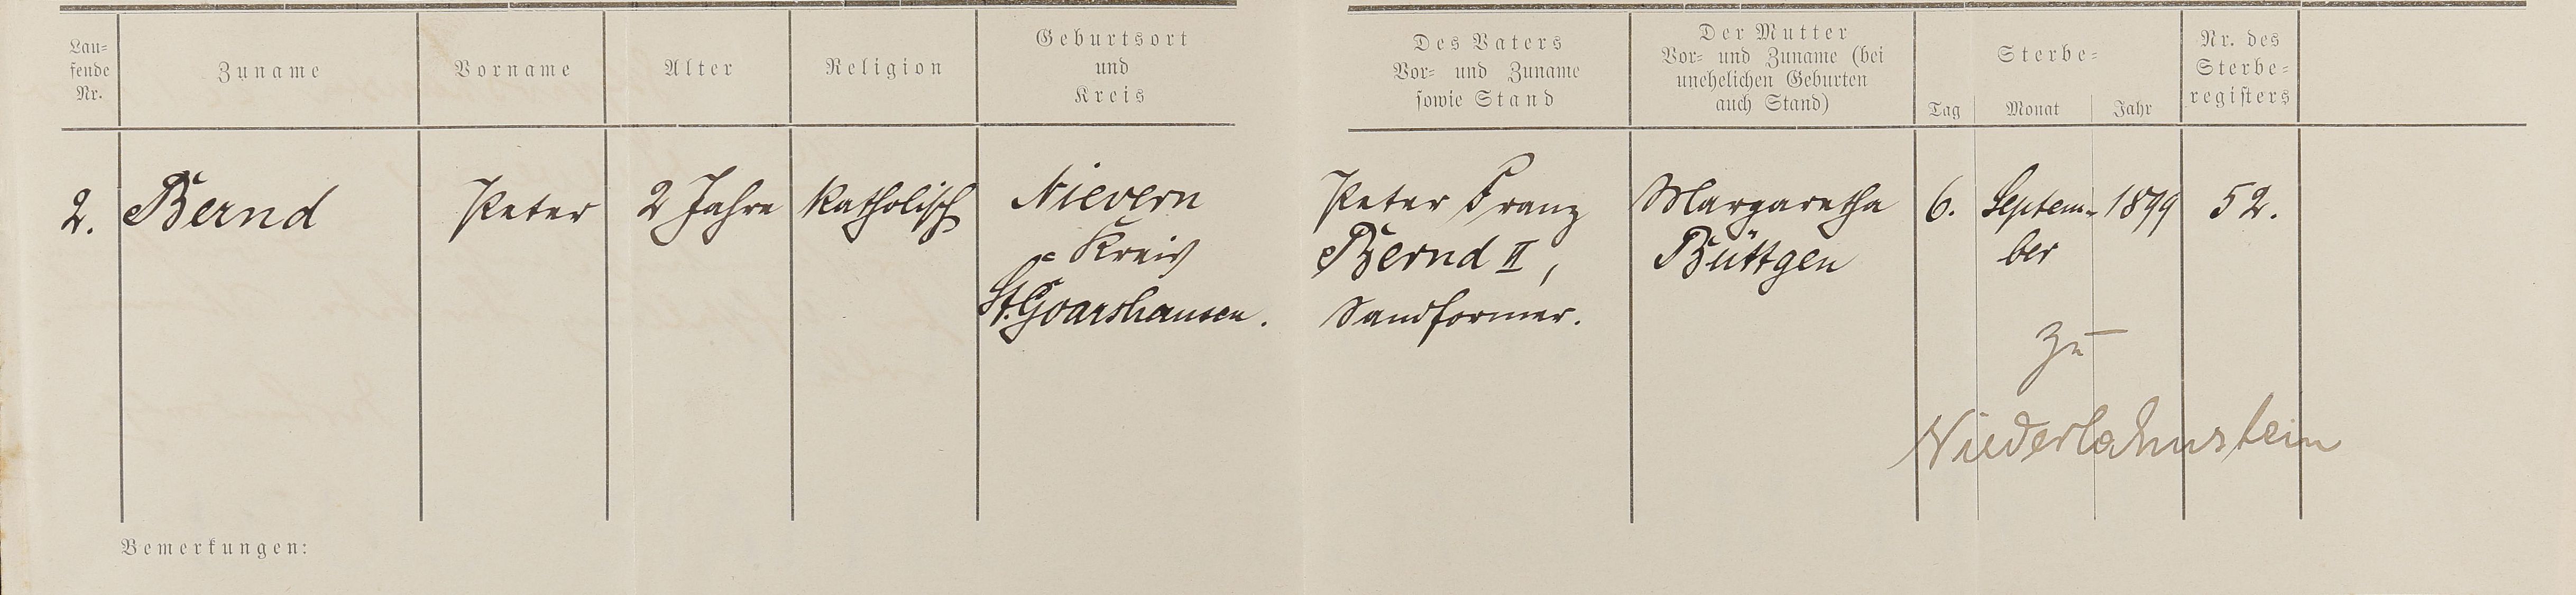 Lau=
fende
Nr.
Zuname
Vorname
Alter
Religion
Geburtsort
und
Kreis
Des Vaters
Vor= und Zuname
sowie Stand
Der Mutter
Vor= und Zuname (bei
unehelichen Geburten
auch Stand)
Sterbe=
Tag
Monat
Jahr
Nr. des
Sterbe=
registers
2.
Bernd
Peter
2 Jahre
katholisch
Nievern
Kreis
St. Goarshausen.
Peter Franz
Bernd II,
Sandformer.
Margaretha
Büttgen
6.
Septem-
ber
1899
52.
zu
Niederlahnstein
Bemerkungen: